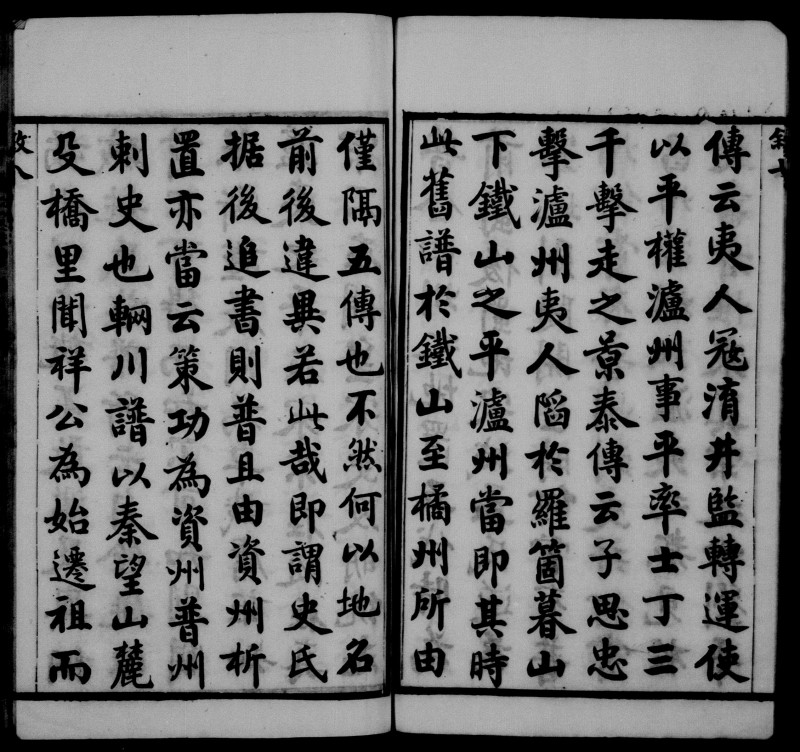 傳云夷人冦淯井監轉運使
以平權瀘州事平率士丁三
千擊走之景泰傳云子思忠
擊瀘州夷人䧟於羅箇暮山
下鐵山之平瀘州當即其時
此舊譜於鐵山至橘州所由
僅隔五傳也不然何以地名
前後違異若此哉即謂史氏
据後追書則普且由資州析
置亦當云策功為資州普州
刺史也輞川譜以秦望山麓
殳橋里聞祥公為始遷祖而